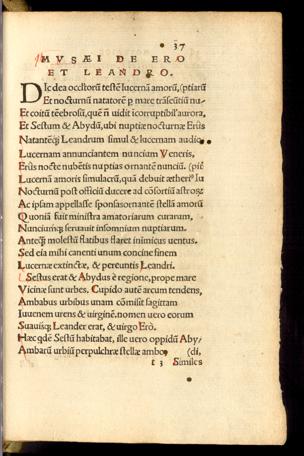 37
MVSÆI DE ERO
ET LEANDRO.
DIc dea occultorū testē lucernā amorū, (ptiarū
Et nocturnū natatorē p mare trāseūtiū nu-
Et coitū tēebrosū, quē ñ uidit icorruptibil' aurora,
Et Sestum & Abydū, ubi nuptiæ nocturnæ Erus
Natantēq; Leandrum simul & lucernam audio.
Lucernam annunciantem nuncium Veneris,
Erus nocte nubētis nuptias ornantē nunciū.
Lucernā amoris simulacrū, quā debuit ætheri' Iu
Nocturnū post officiū ducere ad cōsortiū astrorū
Ac ipsam appellasse sponsas ornantē stellā amorū
Quoniā fuit ministra amatoriarum curarum,
Nunciumq; seruauit insomnium nuptiarum.
Anteq; molestū flatibus flaret inimicus uentus.
Sed eia mihi canenti unum concine finem
Lucernæ extinctæ, & pereuntis Leandri.
Sestus erat & Abydus è regione, prope mare
Vicinæ sunt urbes. Cupido autē arcum tendens,
Ambabus urbibus unam cōmisit sagittam
Iuuenem urens & uirginē. nomen uero eorum
Suauisq; Leander erat, & uirgo Erò.
Hæc qdē Sestū habitabat, ille uero oppidū Aby/
Ambarū urbiū perpulchræ stellæ ambo, (di,
t 3 Similes